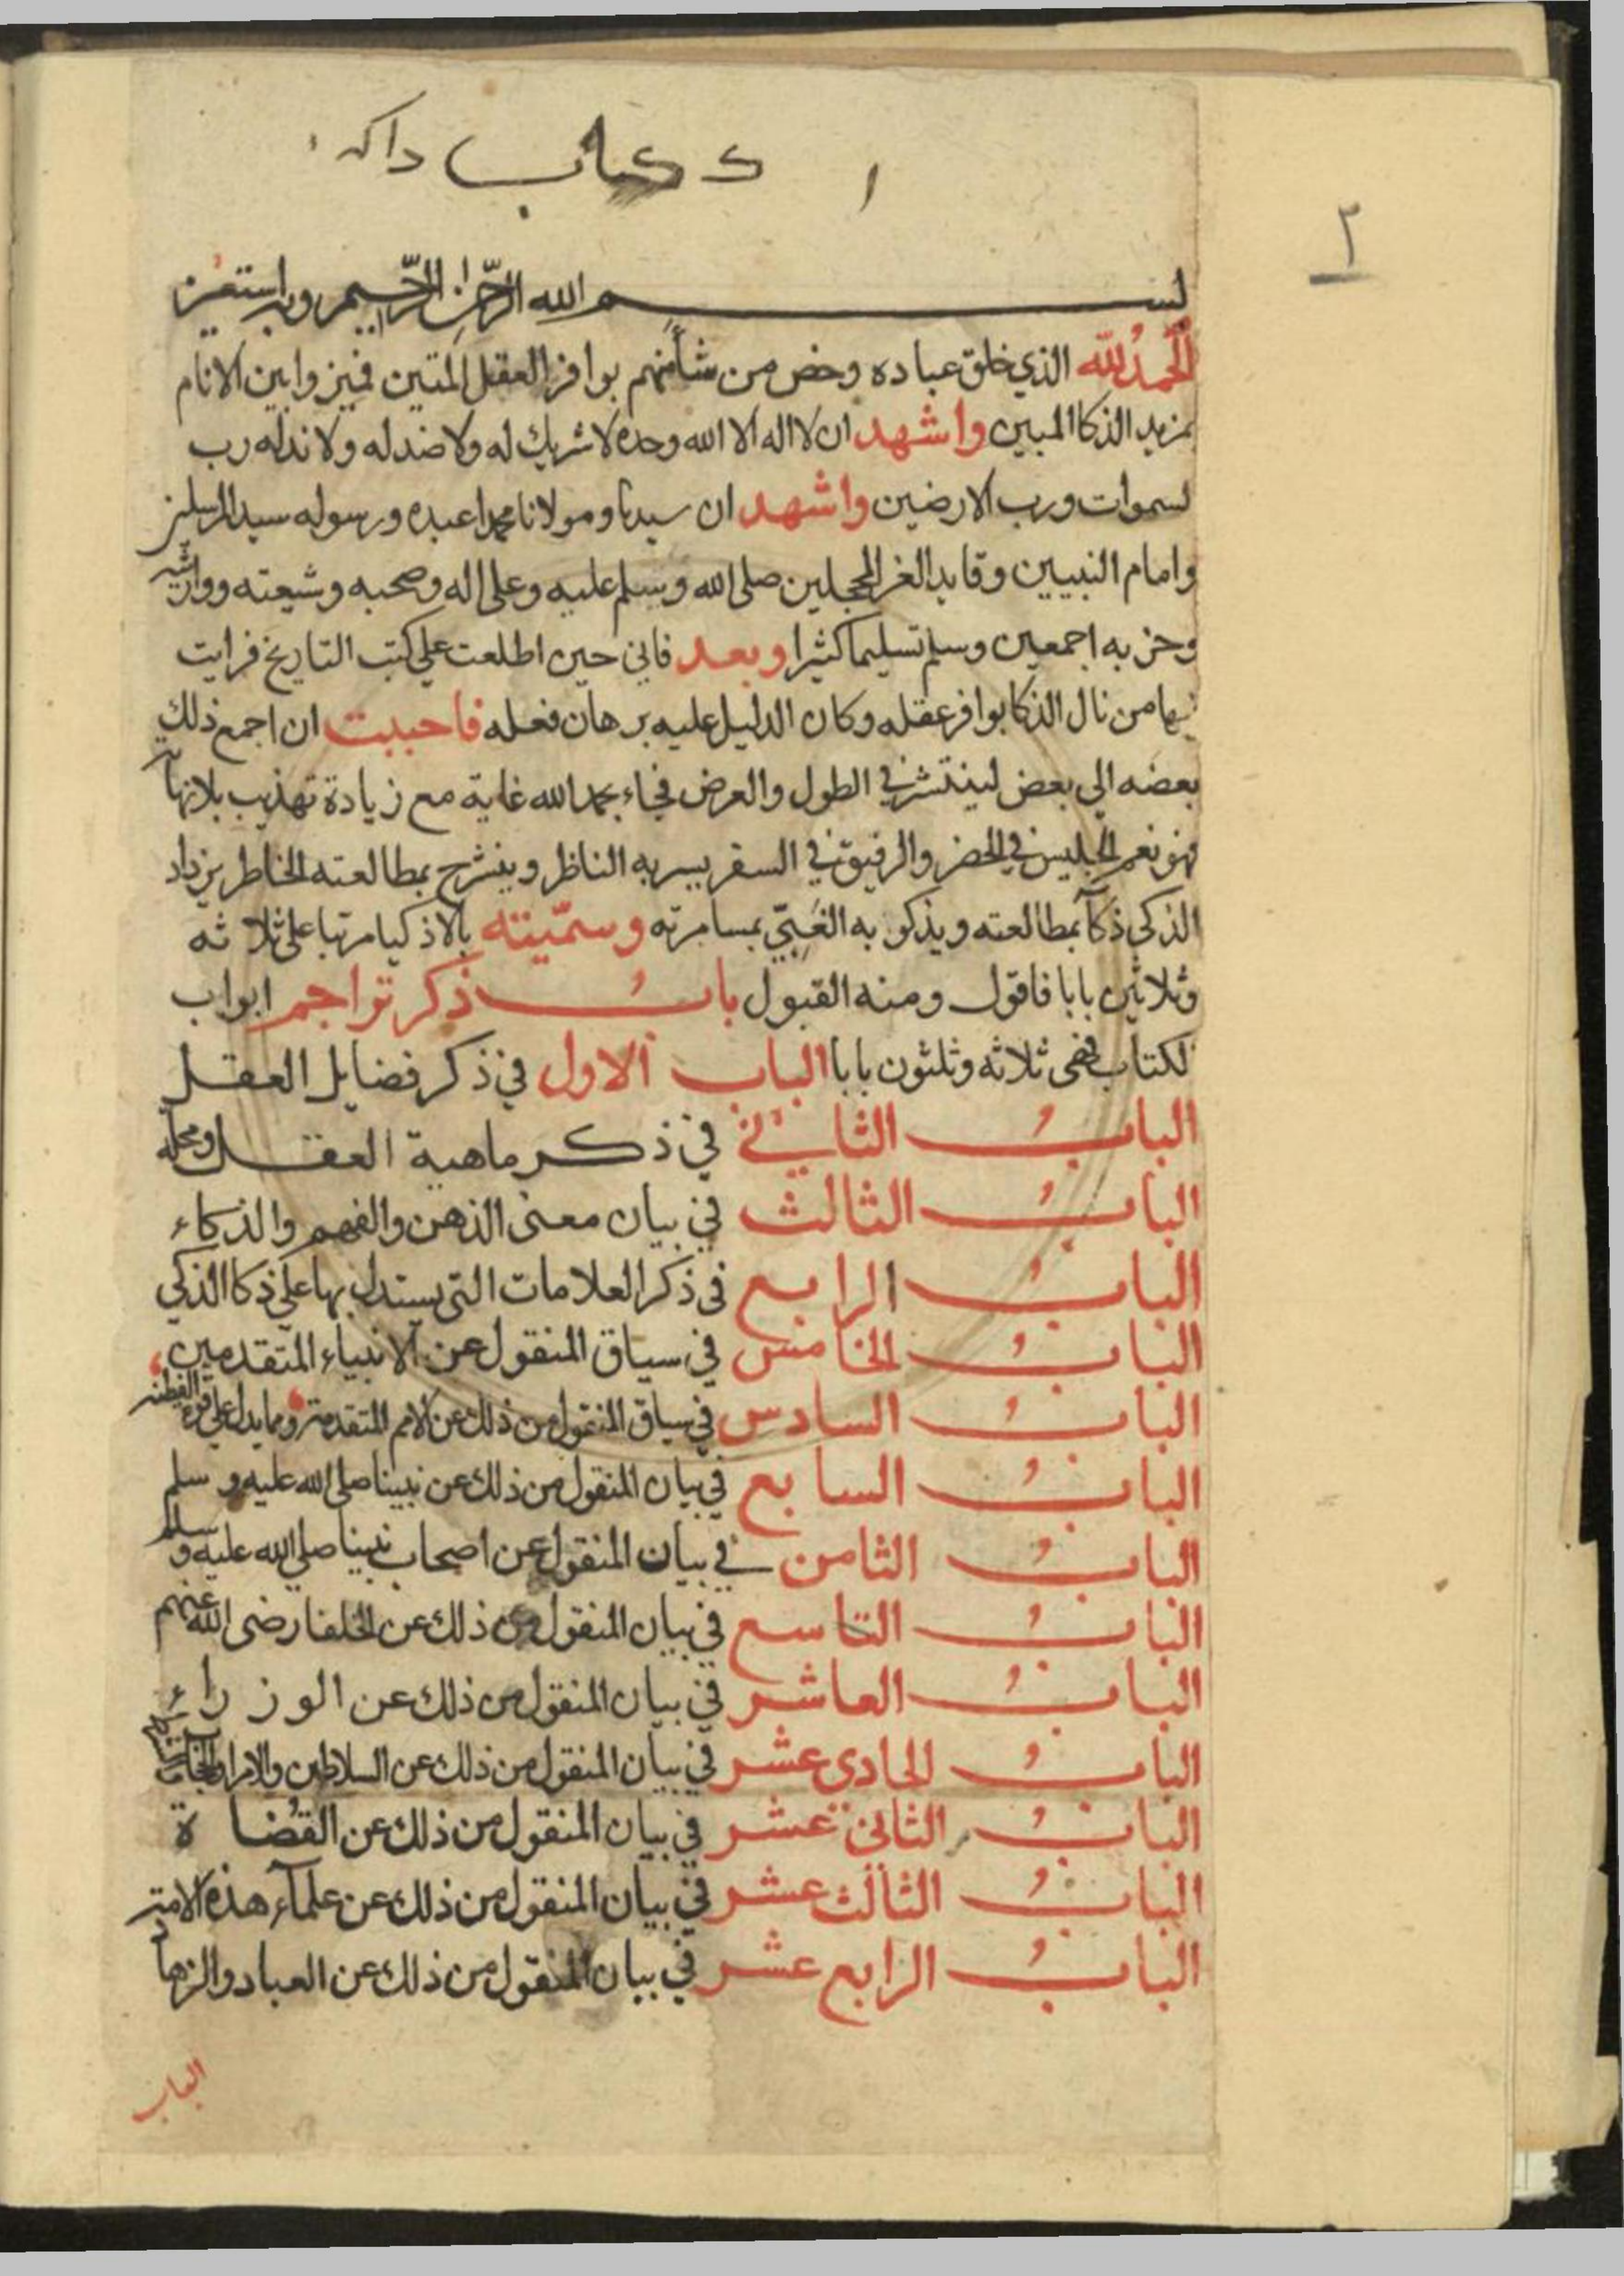 كتاب
٢
بسم الله الرحمن الرحيم وبه استعين
الحمد لله الذي خلق عباده وخص من شأ منهم بوافر العقل المتين فميزوا بين الانام
بمزيد الذكا المبين واشهد ان لا اله الا الله وحده لا شريك له ولا ضد له ولا ند له رب
لسموات ورب الارضين واشهد ان سيدنا ومولانا محمدا عبده ورسوله سيد المرسلين
وامام النبيين وقايد الغر المحجلين صلى الله وسلم عليه وعلى اله وصحبه وشيعته ووارثيه
وحزبه اجمعين وسلم تسليما كثيرا وبعد فاني حين اطلعت على كتب التاريخ فرايت
فيها من نال الذكا بوافر عقله وكان الدليل عليه برهان فعله فاحببت ان اجمع ذلك
بعضه الي بعض لينتشر في الطول والعرض فجاء بحمد الله غاية مع زيادة تهذيب بلا نهاية
فهو نعم الجليس في الحضر والرفيق في السفر يسر به الناظر وينشرح بمطالعته الخاطر يزداد
الذكي ذكآ بمطالعته ويذكو به الغبي بمسامرته وسميته بالاذكيا مرتبا على ثلاثه
وثلاثين بابا فاقول ومنه القبول باب ذكر تراجم ابواب
لكتاب فهى ثلاثه وثلثون بابا الباب الاول في ذكر فضايل العقل
الباب الثاني في ذكر ماهية العقل ومحله
الباب الثالث في بيان معنى الذهن والفهم والذكاء
الباب الرابع في ذكر العلامات التي يستدل بها على ذكا الذكي
الباب الخامس في سياق المنقول عن الانبياء المتقدمين
الباب السادس في سياق المنقول من ذلك عن الامم المتقدمة ومما يدل على قوة الفطنه
الباب السابع في بيان المنقول من ذلك عن نبينا صلى الله عليه وسلم
الباب الثامن في بيان المنقول عن اصحاب نبينا صلى الله عليه وسلم
الباب التاسع في بيان المنقول من ذلك عن الخلفا رضى الله عنهم
الباب العاشر في بيان المنقول من ذلك عن الوزراء
الباب الحادى عشر في بيان المنقول من ذلك عن السلاطين والامرا والحجاب
الباب الثاني عشر في بيان المنقول من ذلك عن القضاة
الباب الثالث عشر في بيان المنقول من ذلك عن علمآء هذه الامة
الباب الرابع عشر في بيان المنقول من ذلك عن العباد والزهاد
الباب